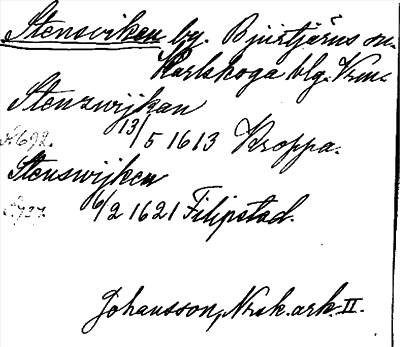 Stensviken by. Bjurtjärns sn.
Karlskoga blg. Vrm.
Stenzwijkan
13/5 1613 Kroppa.
Stenswijken
6/2 1621 Filipstad.
Johansson, Nrsk. ark. II.